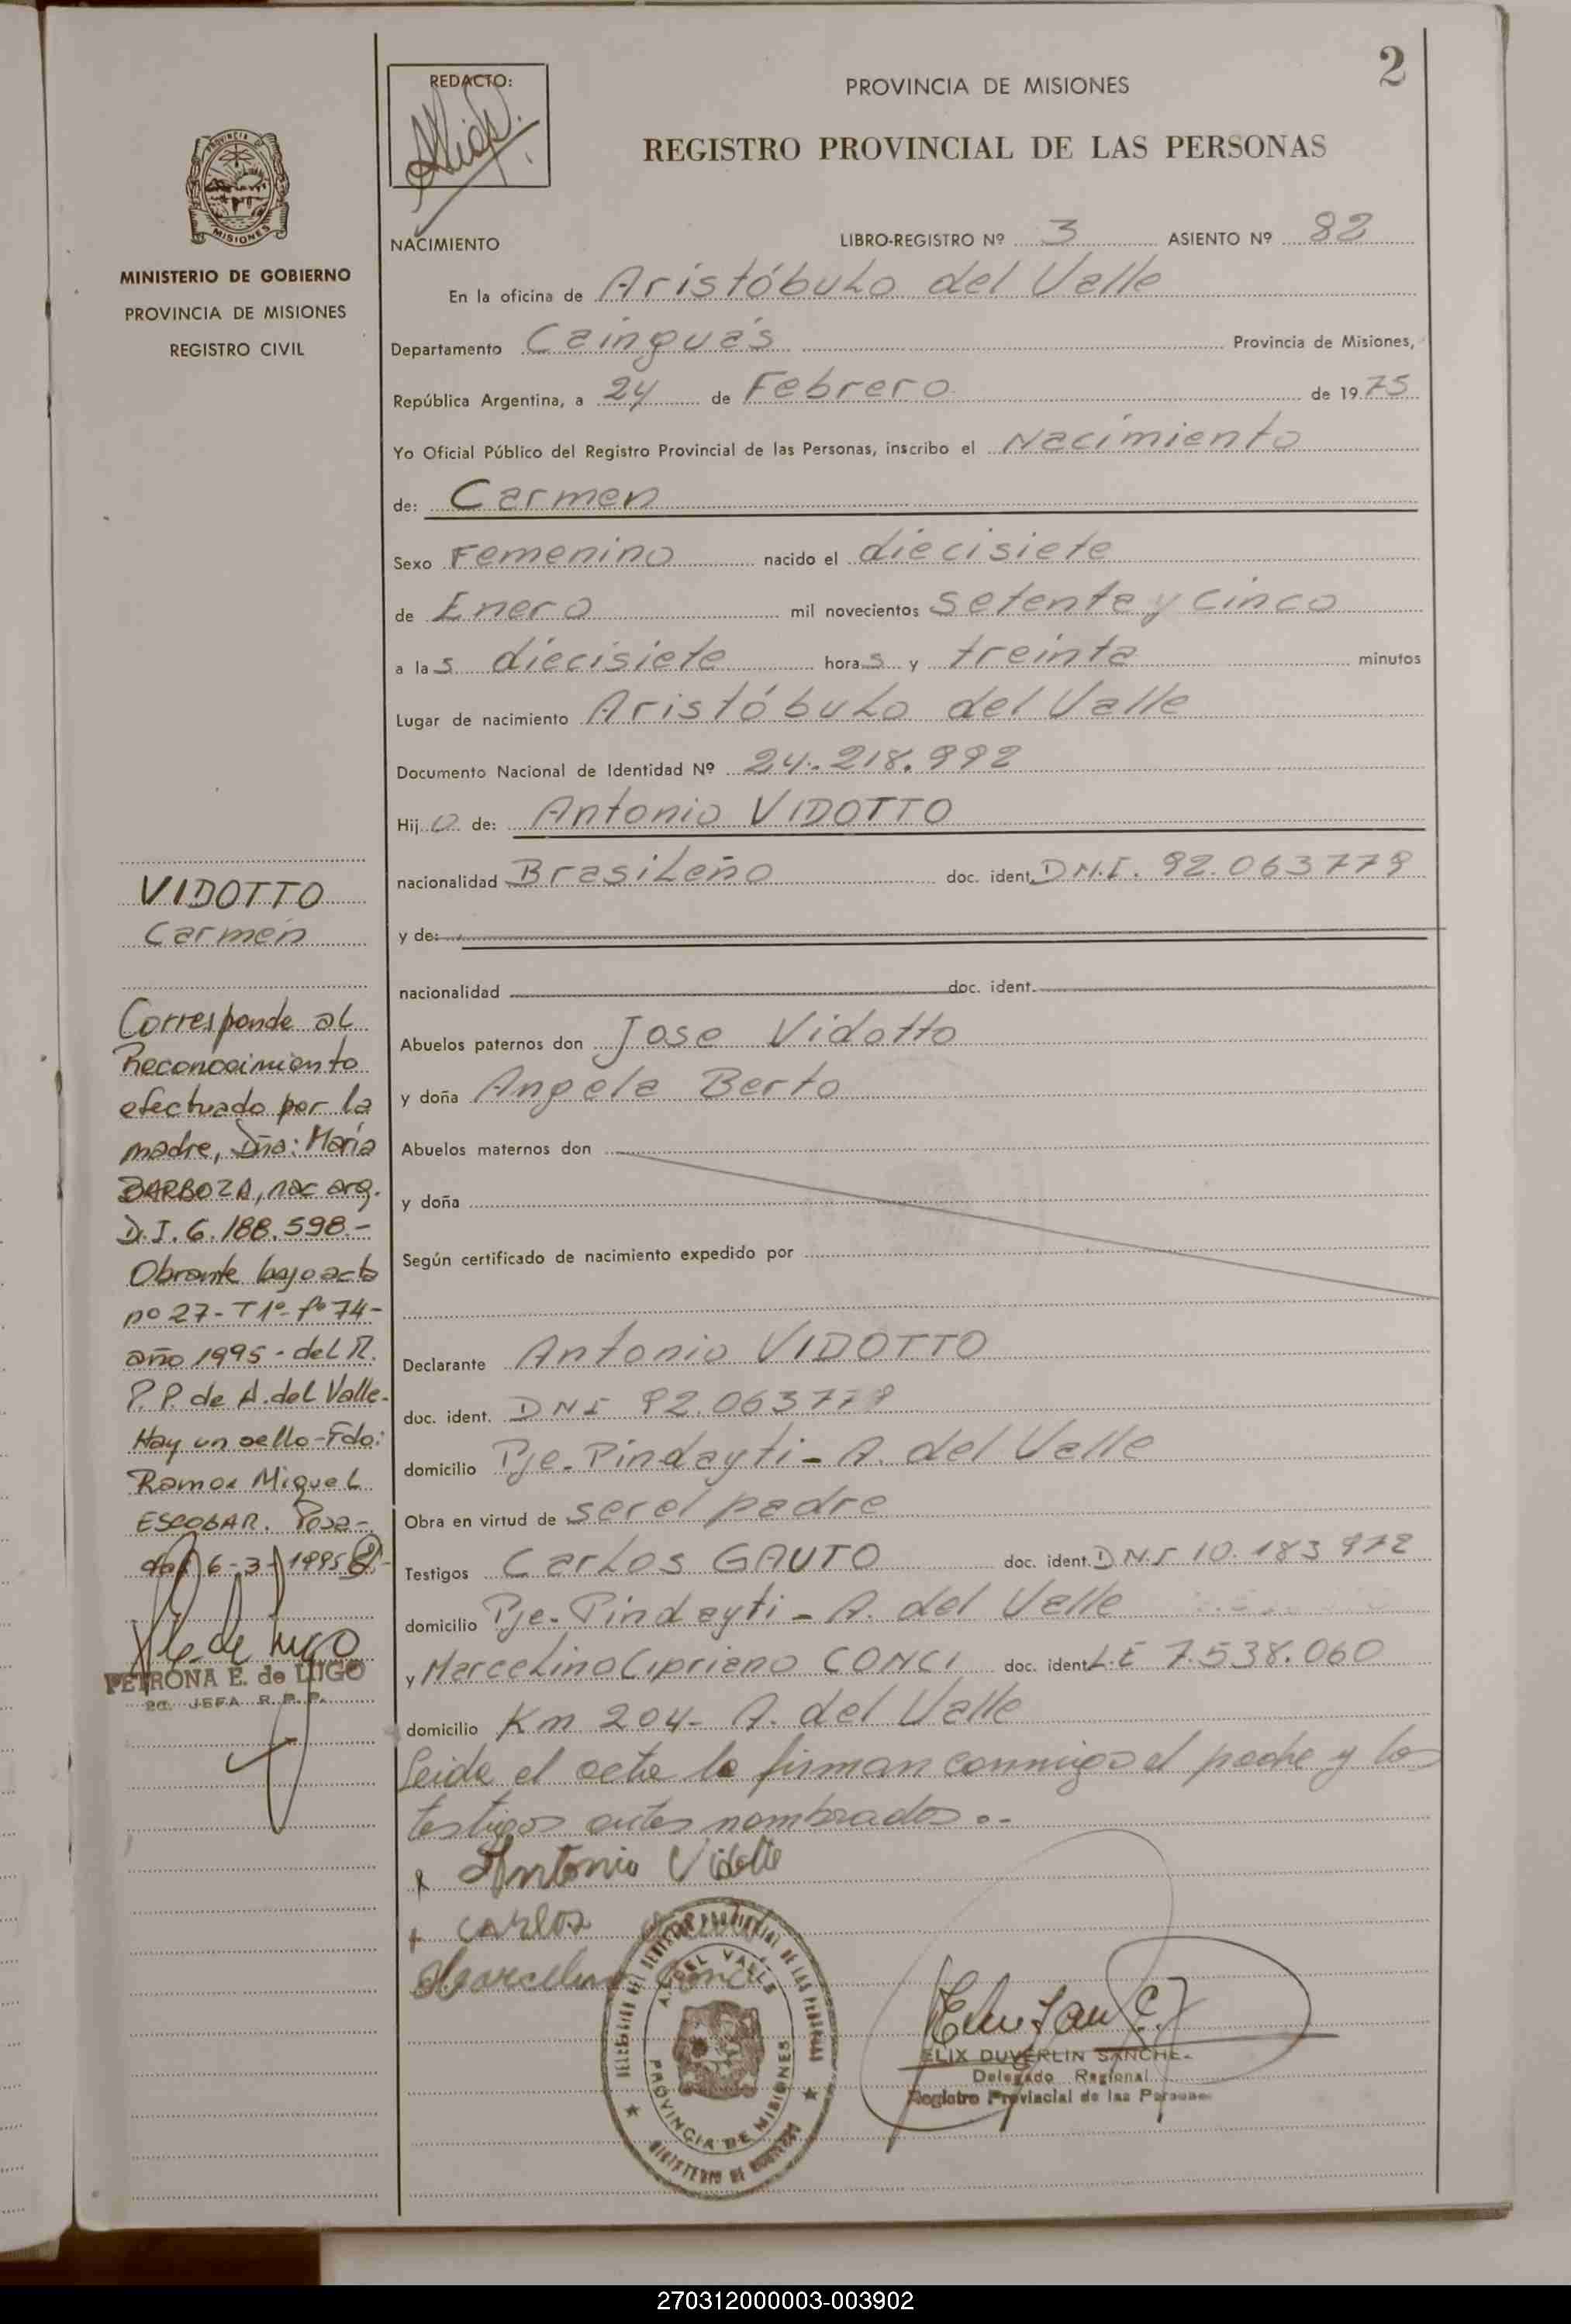 2
REDACTO:
PROVINCIA DE MISIONES
REGISTRO PROVINCIAL DE LAS PERSONAS
PROVINCIA
MISIONES
MINISTERIO DE GOBIERNO
PROVINCIA DE MISIONES
REGISTRO CIVIL
NACIMIENTO
LIBRO-REGISTRO Nº 3 ASIENTO Nº 82
En la oficina de Aristóbulo del Valle
Departamento Cainguás Provincia de Misiones,
República Argentina, a 24 de Febrero de 1975
Yo Oficial Público del Registro Provincial de las Personas, inscribo el Nacimiento
de: Carmen
Sexo Femenino nacido el diecisiete
de Enero mil novecientos setenta y cinco
a las diecisiete horas y treinta minutos
Lugar de nacimiento Aristóbulo del Valle
Documento Nacional de Identidad Nº 24.218.992
Hij a de: Antonio VIDOTTO
nacionalidad Brasileño doc. ident. D.N.I. 92.063779
y de:
nacionalidad doc. ident.
Abuelos paternos don Jose Vidotto
y doña Angela Berto
Abuelos maternos don
y doña
Según certificado de nacimiento expedido por
Declarante Antonio VIDOTTO
doc. ident. DNI 92.063779
domicilio Pje. Pindayti - A. del Valle
Obra en virtud de ser el padre
Testigos Carlos GAUTO doc. ident. DNI 10.183.972
domicilio Pje. Pindayti - A. del Valle
y Marcelino Cipriano CONCI doc. ident. L.E 7.538.060
domicilio Km 204- A. del Valle
Leida el acta la firman conmigo el padre y los
testigos antes nombrados.-
x Antonio Vidotto
x Carlos
Marcelino Conci
VIDOTTO
Carmen
Corresponde al
Reconocimiento
efectuado por la
madre, Dña: María
BARBOZA, nac arg.
D.I. 6.188.598-
Obrante bajo acta
nº 27- T 1º- fº 74-
año 1995 - del R.
P.P. de A. del Valle-
Hay un sello-Fdo:
Ramon Miguel
ESCOBAR. Posa-
das 6-3-1995
PETRONA E. de LUGO
2a. JEFA R.P.P.
A. DEL VALLE
PROVINCIA DE MISIONES
MINISTERIO DE GOBIERNO
ELIX DUVERLIN SANCHE
Delegado Regional
Registro Provincial de las Personas
270312000003-003902